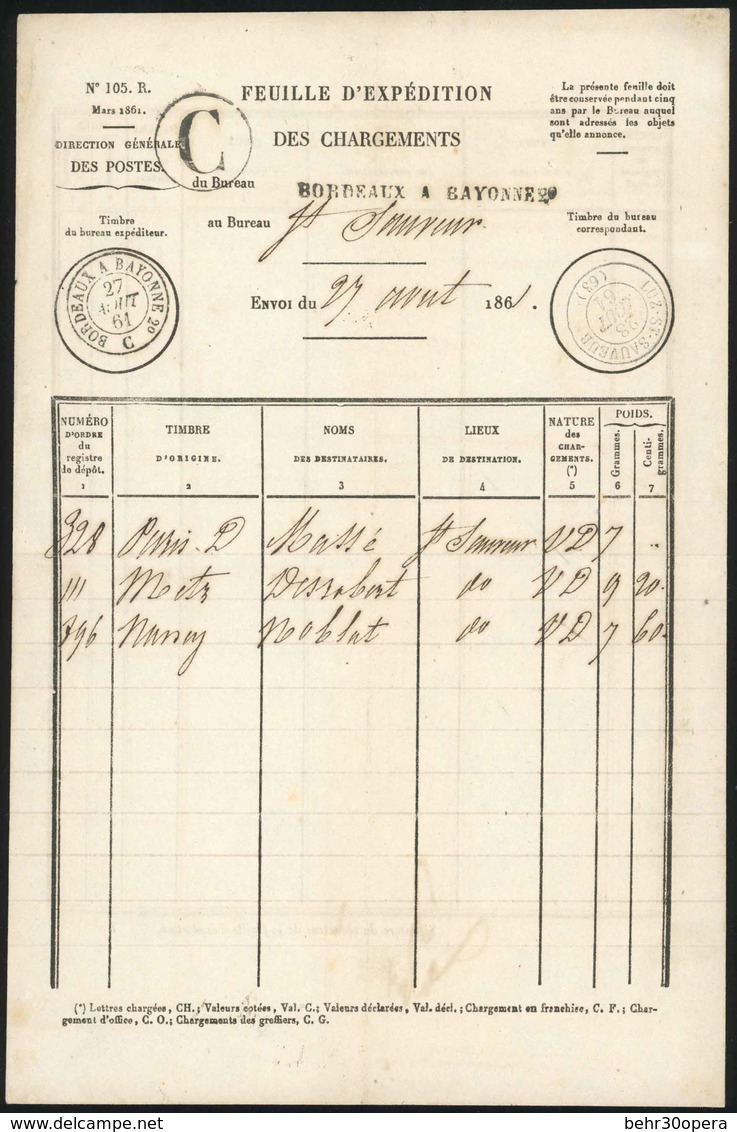 N° 105. R.
Mars 1861.
DIRECTION GÉNÉRALE
DES POSTES.
C
FEUILLE D'EXPÉDITION
DES CHARGEMENTS
La présente feuille doit
être conservée pendant cinq
ans par le Bureau auquel
sont adressés les objets
qu'elle annonce.
du Bureau BORDEAUX A BAYONNE 2º
au Bureau St Sauveur.
Envoi du 27 aout 1861.
Timbre
du bureau expéditeur.
BORDEAUX A BAYONNE 2º
27
AOUT
61
C
Timbre du bureau
correspondant.
ST-SAUVEUR (63)
28
AOUT
61
NUMÉRO
D'ORDRE
du
registre
de dépôt.
1
TIMBRE
D'ORIGINE.
2
NOMS
DES DESTINATAIRES.
3
LIEUX
DE DESTINATION.
4
NATURE
des
CHAR-
GEMENTS.
(*)
5
POIDS.
Grammes.
6
Centi-
grammes.
7
328 Paris. D Massé St Sauveur VD 7 ..
111 Metz Desrobert do VD 9 20.
796 Nancy Noblat do VD 7 60.
(*) Lettres chargées, CH.; Valeurs cotées, Val. C.; Valeurs déclarées, Val. décl.; Chargement en franchise, C. F.; Char-
gement d'office, C. O.; Chargements des greffiers, C. G.
behr30opera